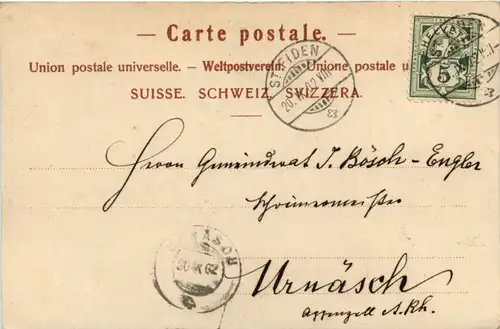 — Carte postale. —
Union postale universelle. — Weltpostverein. — Unione postale u
SUISSE. SCHWEIZ. SVIZZERA.
ST. FIDEN
5
Herrn Gemeinderat J. Bösch-Engler
Schreinermeister
Urnäsch
Appenzell A. Rh.